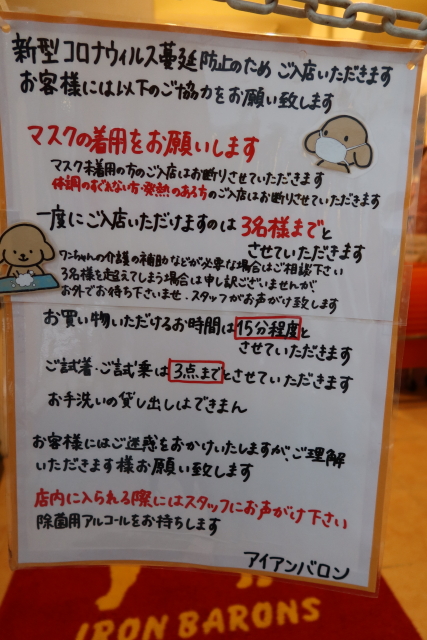 新型コロナウィルス蔓延防止のため ご入店いただきます
お客様には以下のご協力をお願い致します
マスクの着用をお願いします
マスク未着用の方のご入店はお断りさせていただきます
体調のすぐれない方・発熱のある方のご入店はお断りさせていただきます
一度にご入店いただけますのは 3名様までと
させていただきます
ワンちゃんの介護の補助などが必要な場合はご相談下さい
3名様を超えてしまう場合は申し訳ございませんが、
お外でお待ち下さいませ。スタッフがお声がけ致します
お買い物いただけるお時間は15分程度と
させていただきます
ご試着・ご試乗は3点までとさせていただきます
お手洗いの貸し出しはできまん
お客様にはご迷惑をおかけいたしますが、ご理解
いただきます様お願い致します
店内に入られる際にはスタッフにお声がけ下さい
除菌用アルコールをお持ちします
アイアンバロン
IRON BARONS